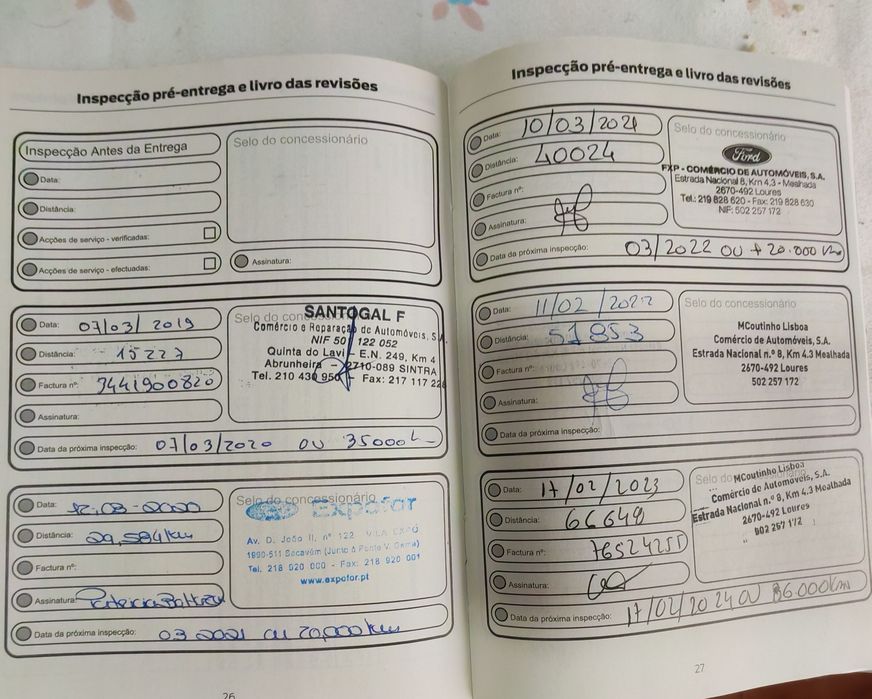 Inspecção pré-entrega e livro das revisões
Inspecção Antes da Entrega
Data:
Distância:
Acções de serviço - verificadas:
Acções de serviço - efectuadas:
Selo do concessionário
Assinatura:
Data: 07/03/2019
Distância: 15227
Factura nº: 9441900820
Assinatura:
Data da próxima inspecção: 07/03/2020 ou 35000
Selo do
SANTOGAL F
Comércio e Reparação de Automóveis, S.A
NIF 50 122 052
Quinta do Lavi - E.N. 249, Km 4
Abrunheira - 2710-089 SINTRA
Tel. 210 430 950 - Fax: 217 117
Data: 12-03-2020
Distância: 29,584 km
Factura nº:
Assinatura:
Data da próxima inspecção: 03 2021 ou 20,000 km
Selo do concessionário
Expofor
Av. D. João II, nº 122 VILA EXPO
1990-511 Sacavém (Junto à Ponte V. Gama)
Tel. 218 920 000 - Fax: 218 920 001
www.expofor.pt
26
Inspecção pré-entrega e livro das revisões
Data: 10/03/2021
Distância: 40024
Factura nº:
Assinatura:
Data da próxima inspecção: 03/2022 ou + 20.000 km
Selo do concessionário
Ford
FXP - COMÉRCIO DE AUTOMÓVEIS, S.A.
Estrada Nacional 8, Km 4,3 - Mealhada
2670-492 Loures
Tel.: 219 828 620 - Fax: 219 828 630
NIF: 502 257 172
Data: 11/02/2022
Distância: 51853
Factura nº:
Assinatura:
Data da próxima inspecção:
Selo do concessionário
MCoutinho Lisboa
Comércio de Automóveis, S.A.
Estrada Nacional n.º 8, Km 4.3 Mealhada
2670-492 Loures
502 257 172
Data: 17/02/2023
Distância: 66648
Factura nº:
Assinatura:
Data da próxima inspecção: 17/02/2024 ou 86.000 km
Selo do
MCoutinho Lisboa
Comércio de Automóveis, S.A.
Estrada Nacional n.º 8, Km 4.3 Mealhada
2670-492 Loures
502 257 172
27